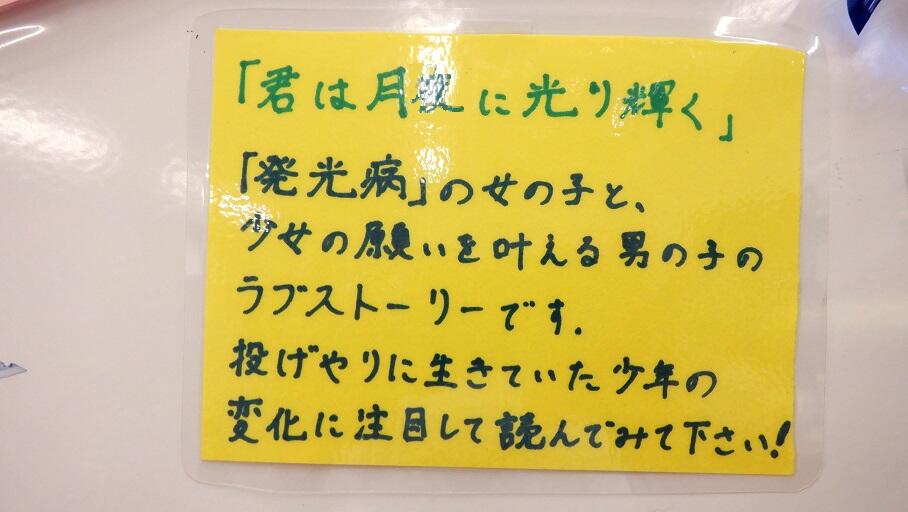 「君は月夜に光り輝く」
「発光病」の女の子と、
少女の願いを叶える男の子の
ラブストーリーです.
投げやりに生きていた少年の
変化に注目して読んでみて下さい!